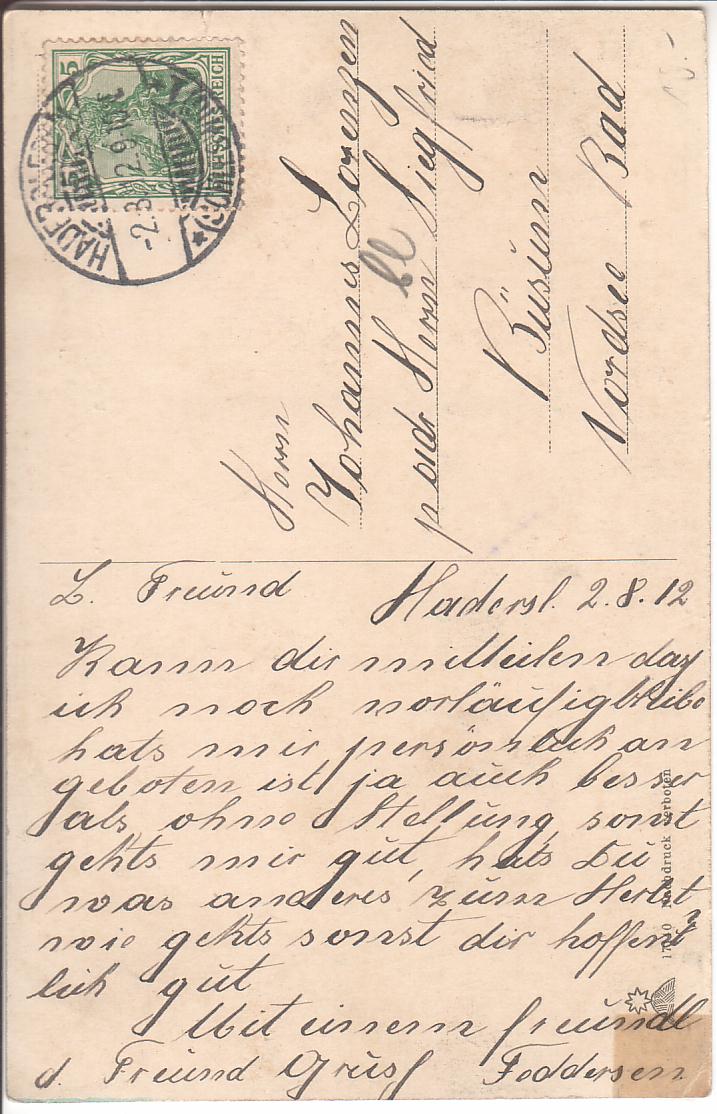 5
DEUTSCHES REICH
HADERSLEBEN
-2.8.12.9-10N
(SCHLESWIG)
Herrn
Johannes Lorenzen
bl
p adr Herrn Siegfried
Büsum
Nordsee Bad
L. Freund Hadersl. 2.8.12
Kann dir mitteilen das
ich noch vorläufig bleibe
hats mir persönlich an
geboten ist ja auch besser
als ohne Stellung, sonst
gehts mir gut, hats Du
was anderes zum Herbst
wie gehts sonst dir hoffent
lich gut
Mit einem freundl
d. Freund Gruss Feddersen
17040 Nachdruck verboten